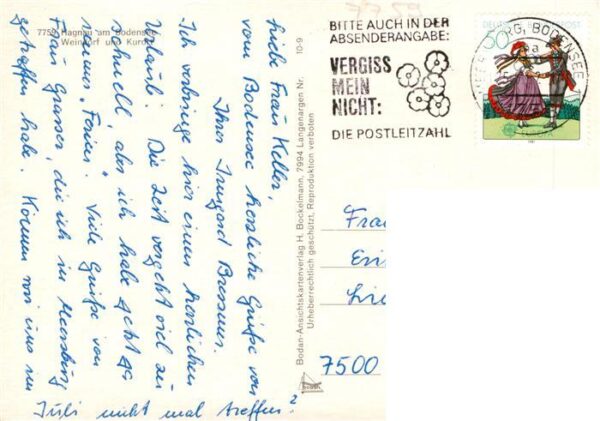 7759 Hagnau am Bodensee
Weindorf und Kurort
Liebe Frau Keller,
vom Bodensee herzliche Grüße von
Ihrer Irmgard
Ich verbringe hier einen herrlichen
Urlaub. Die Zeit vergeht viel zu
schnell, aber ich habe jetzt
"Ferien". Viele Grüße von
Frau Grasser, die ich in Meersburg
getroffen habe. Können wir uns im
Juli nicht mal treffen?
10-9
Bodan-Ansichtskartenverlag H. Bockelmann, 7994 Langenargen Nr.
Urheberrechtlich geschützt, Reproduktion verboten
BITTE AUCH IN DER
ABSENDERANGABE:
VERGISS
MEIN
NICHT:
DIE POSTLEITZAHL
DEUTSCHE BUNDESPOST
50
BODENSEE
Frau
Eri
7500